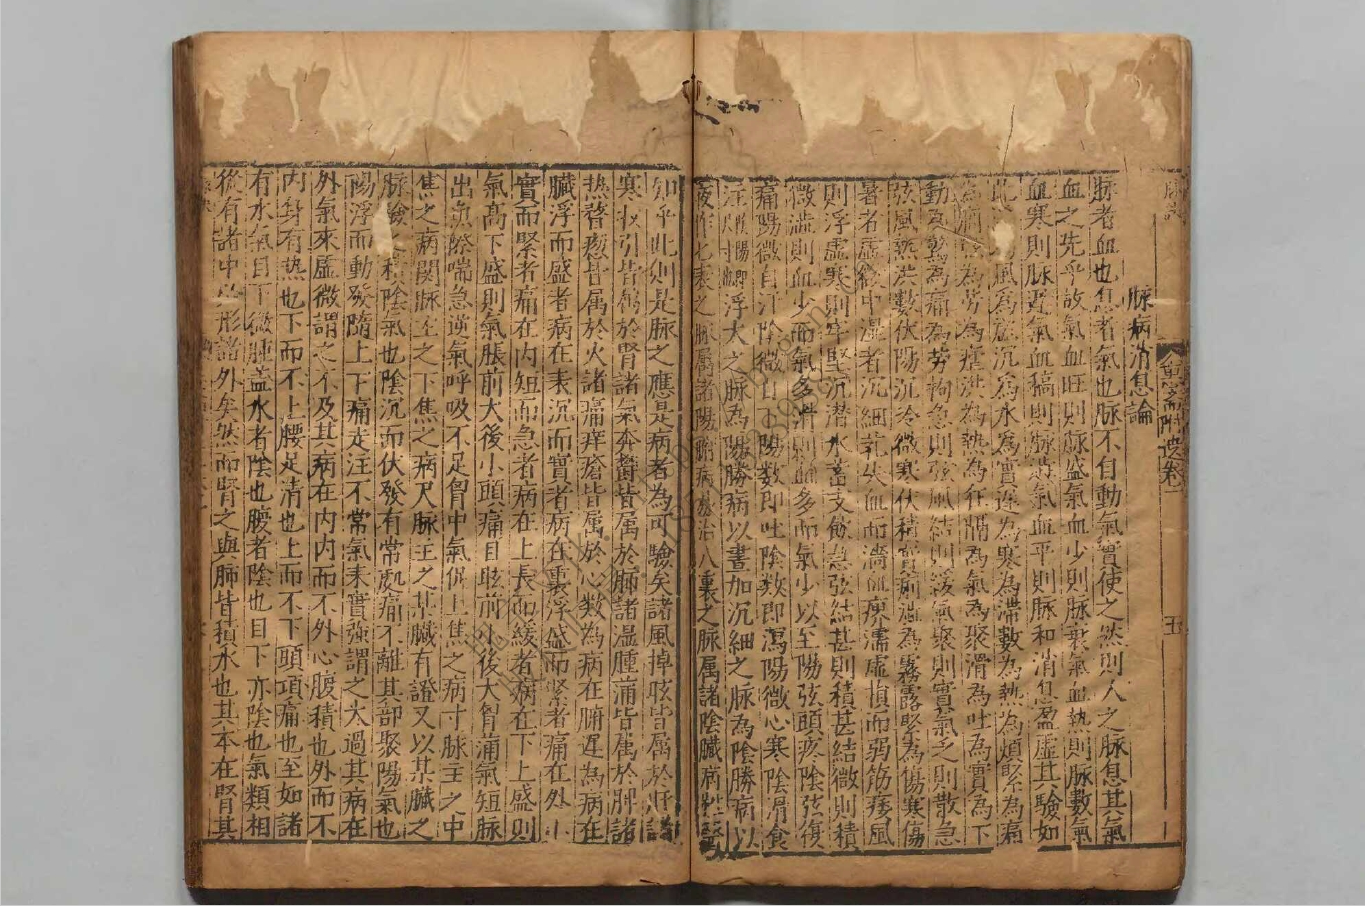 脉病消息論
脉者血也息者氣也脉不自動氣實使之然則人之脉息其氣
血之先乎故氣血旺則脉盛氣血少則脉衰氣血熱則脉數氣
血寒則脉遲氣血稿則脉濇氣血平則脉和消息盈虛其驗如
此 風為 沉為水為實遲為寒為滯數為熱為煩緊為痛
為痛 為勞為瘧洪為熱為狂 為氣為聚滑為吐為實為下
動為驚為痛為勞拘急則弦風結則緩氣聚則實氣乏則散急
弦風熱洪數伏陽沉冷微寒伏積實痢濇為霧露緊為傷寒傷
暑者虛微中濕者沉細乳失血而濇血痺濡虛損而弱筋痿風
則浮虛寒則牢堅沉潜水畜支飲急弦結甚則積甚結微則積
微濇則血少而氣多滑則血多而氣少以至陽弦頭疼陰弦復
痛陽微自汗陰微自下陽數即吐陰数即瀉陽微心寒陰滑食
注 浮大之脉為陽勝病以晝加沉細之脉為陰勝病以
夜作七表之脉属諸陽腑病 治八裏之脉属諸陰臟病
如乎此則是脉之應是病者為可驗矣諸風掉眩皆属於肝諸
寒收引皆属於腎諸氣奔鬱皆属於肺諸濕腫滿皆属於脾諸
热瞀瘛皆属於火諸痛痒瘡皆属於心数為病在腑遲為病在
臟浮而盛者病在表沉而實者病在裏浮盛而緊者痛在外小
實而緊者痛在内短而急者病在上長而緩者病在下上盛則
氣高下盛則氣脹前大後小頭痛目眩前小後大胷滿氣短脉
出魚際喘急逆氣呼吸不足胷中氣 上焦之病寸脉主之中
焦之病関脉主之下焦之病尺脉主之其臟有證又以某臟之
脉驗 陰氣也陰沉而伏發有常處痛不離其部聚陽氣也
陽浮而動發隨上下痛走注不常氣来實強謂之太過其病在
外氣來虛微謂之不及其病在内内而不外心腹積也外而不
内身有热也下而不上腰足清也上而不下頭項痛也至如諸
有水氣目下微腫盖水者陰也腰者陰也目下亦陰也氣類相
從有諸中 形諸外矣然而腎之與肺皆積水也其本在腎其
五